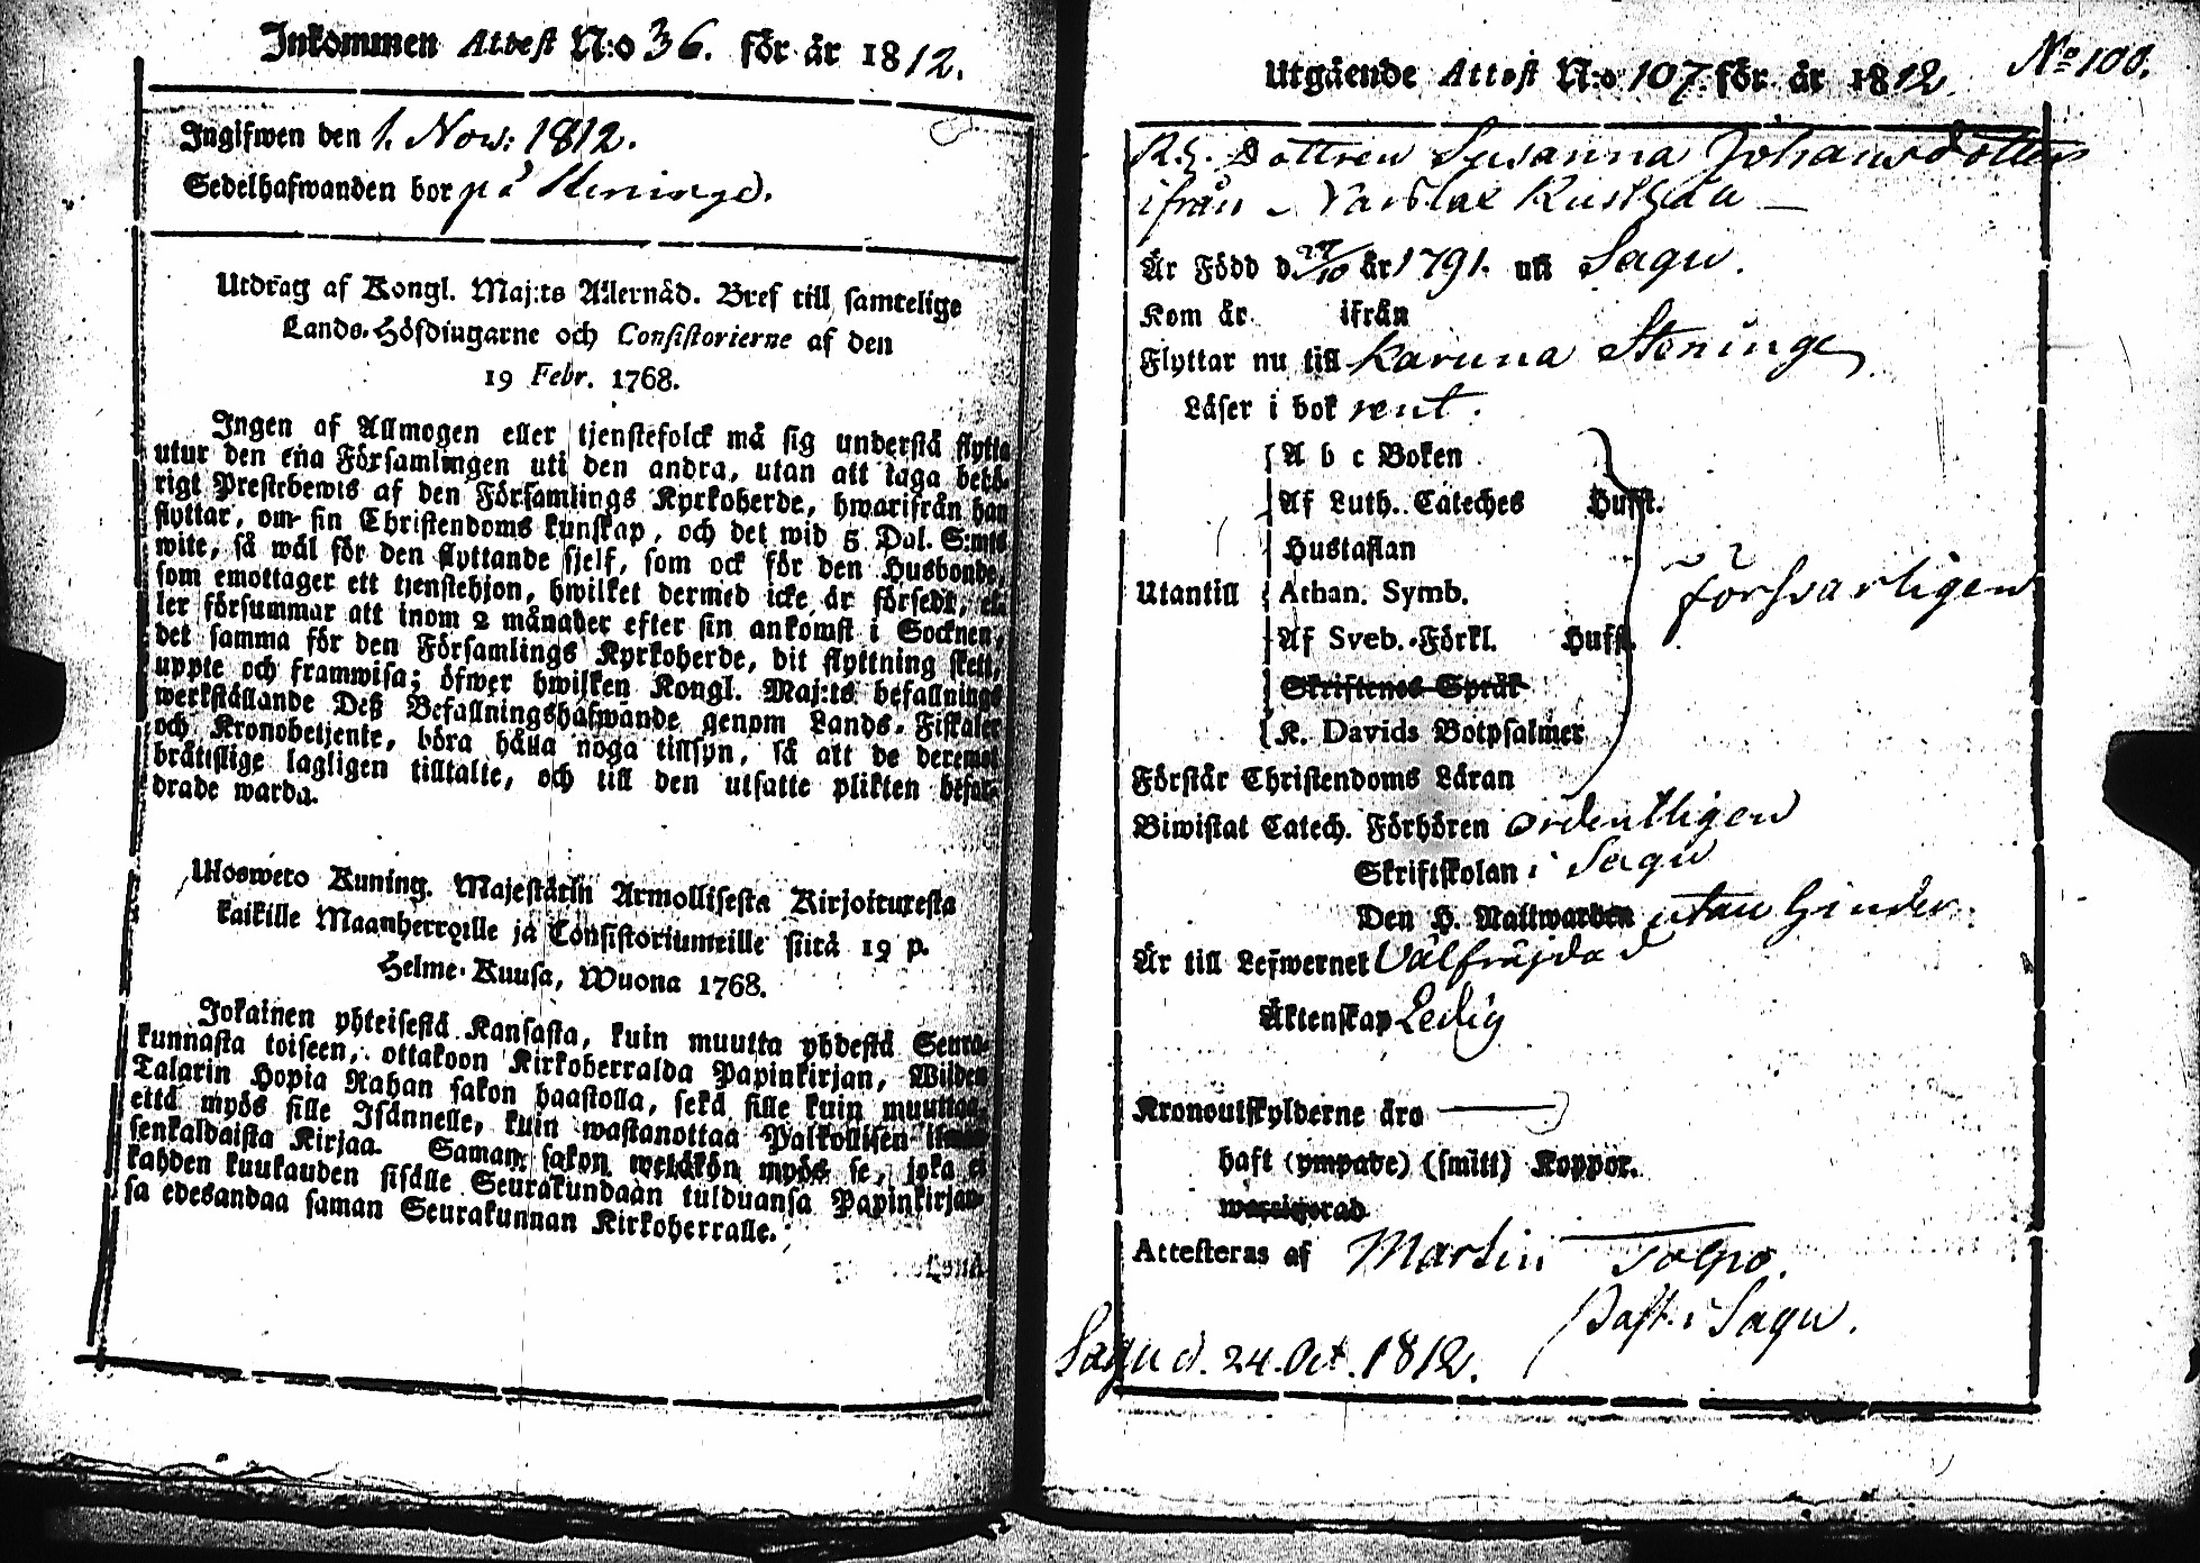 Inkommen Attest N:o 36. för år 1812.
Ingifwen den 1. Nov: 1812.
Sedelhafwanden bor på Steninge.
Utdrag af Kongl. Maj:ts Allernåd. Bref till samtelige
Lands-Höfdingarne och Consistorierne af den
19 Febr. 1768.
Ingen af Allmogen eller tjenstefolck må sig understå flytta
utur den ena Församlingen uti den andra, utan att taga behö-
rigt Prestebewis af den Församlings Kyrkoherde, hwarifrån han
flyttar, om sin Christendoms kunskap, och det wid 5 Dal. S:mts
wite, så wäl för den flyttande sjelf, som ock för den Husbonde,
som emottager ett tjenstehjon, hwilket dermed icke är försedt, el-
ler försummar att inom 2 månader efter sin ankomst i Socknen,
det samma för den Församlings Kyrkoherde, dit flyttning skett,
uppte och framwisa; öfwer hwilken Kongl. Maj:ts befallnings
werkställande Deß Befallningshafwande genom Lands-Fiskaler
och Kronobetjente, böra hålla noga tillsyn, så att de deremot
brättslige lagligen tilltalte, och till den utsatte plikten befor-
drade warda.
Ulosweto Kuning. Majestätin Armollisesta Kirjoituxesta
kaikille Maanherroille ja Consistoriumeille siitä 19 p.
Helme-Kuusa, Wuona 1768.
Jokainen yhteisestä Kansasta, kuin muutta yhdestä Seura-
kunnasta toiseen, ottakoon Kirkoherralda Papinkirjan, Wiiden
Talarin Hopia Rahan sakon haastolla, sekä sille kuin muuttaa,
että myös sille Isännelle, kuin wastanottaa Palkollisen ilman
senkaldaista Kirjaa. Saman sakon wetäkön myös se, joka ei
kahden kuukauden sisälle Seurakundaan tulduansa Papinkirjan-
sa edesandaa saman Seurakunnan Kirkoherralle.
Utgående Attest N:o 107. för år 1812.
No 100.
Dottren Susanna Johansdotter
ifrån
Är Född d. 27/10 år 1791. uti Sagu.
Kom år ifrån
Flyttar nu till Karuna Steninge
Läser i bok rent.
A b c Boken
Af Luth. Cateches Hufst.
Hustaflan
Utantill Athan. Symb. försvarligen
Af Sveb. Förkl. Hufst.
Skriftenes Språk
K. Davids Botpsalmer
Förstår Christendoms Läran
Biwistat Catech. Förhören ordentligen
Skriftskolan i Sagu
Den H. Nattwarden utan hinder.
Är till Lefwernet Välfräjdad
Äktenskap Ledig
Kronoutskylderne äro
haft (ympade) (smitt) Koppor.
Attesteras af Martin Tolpo.
Past. i Sagu.
Sagu d. 24. Oct. 1812.